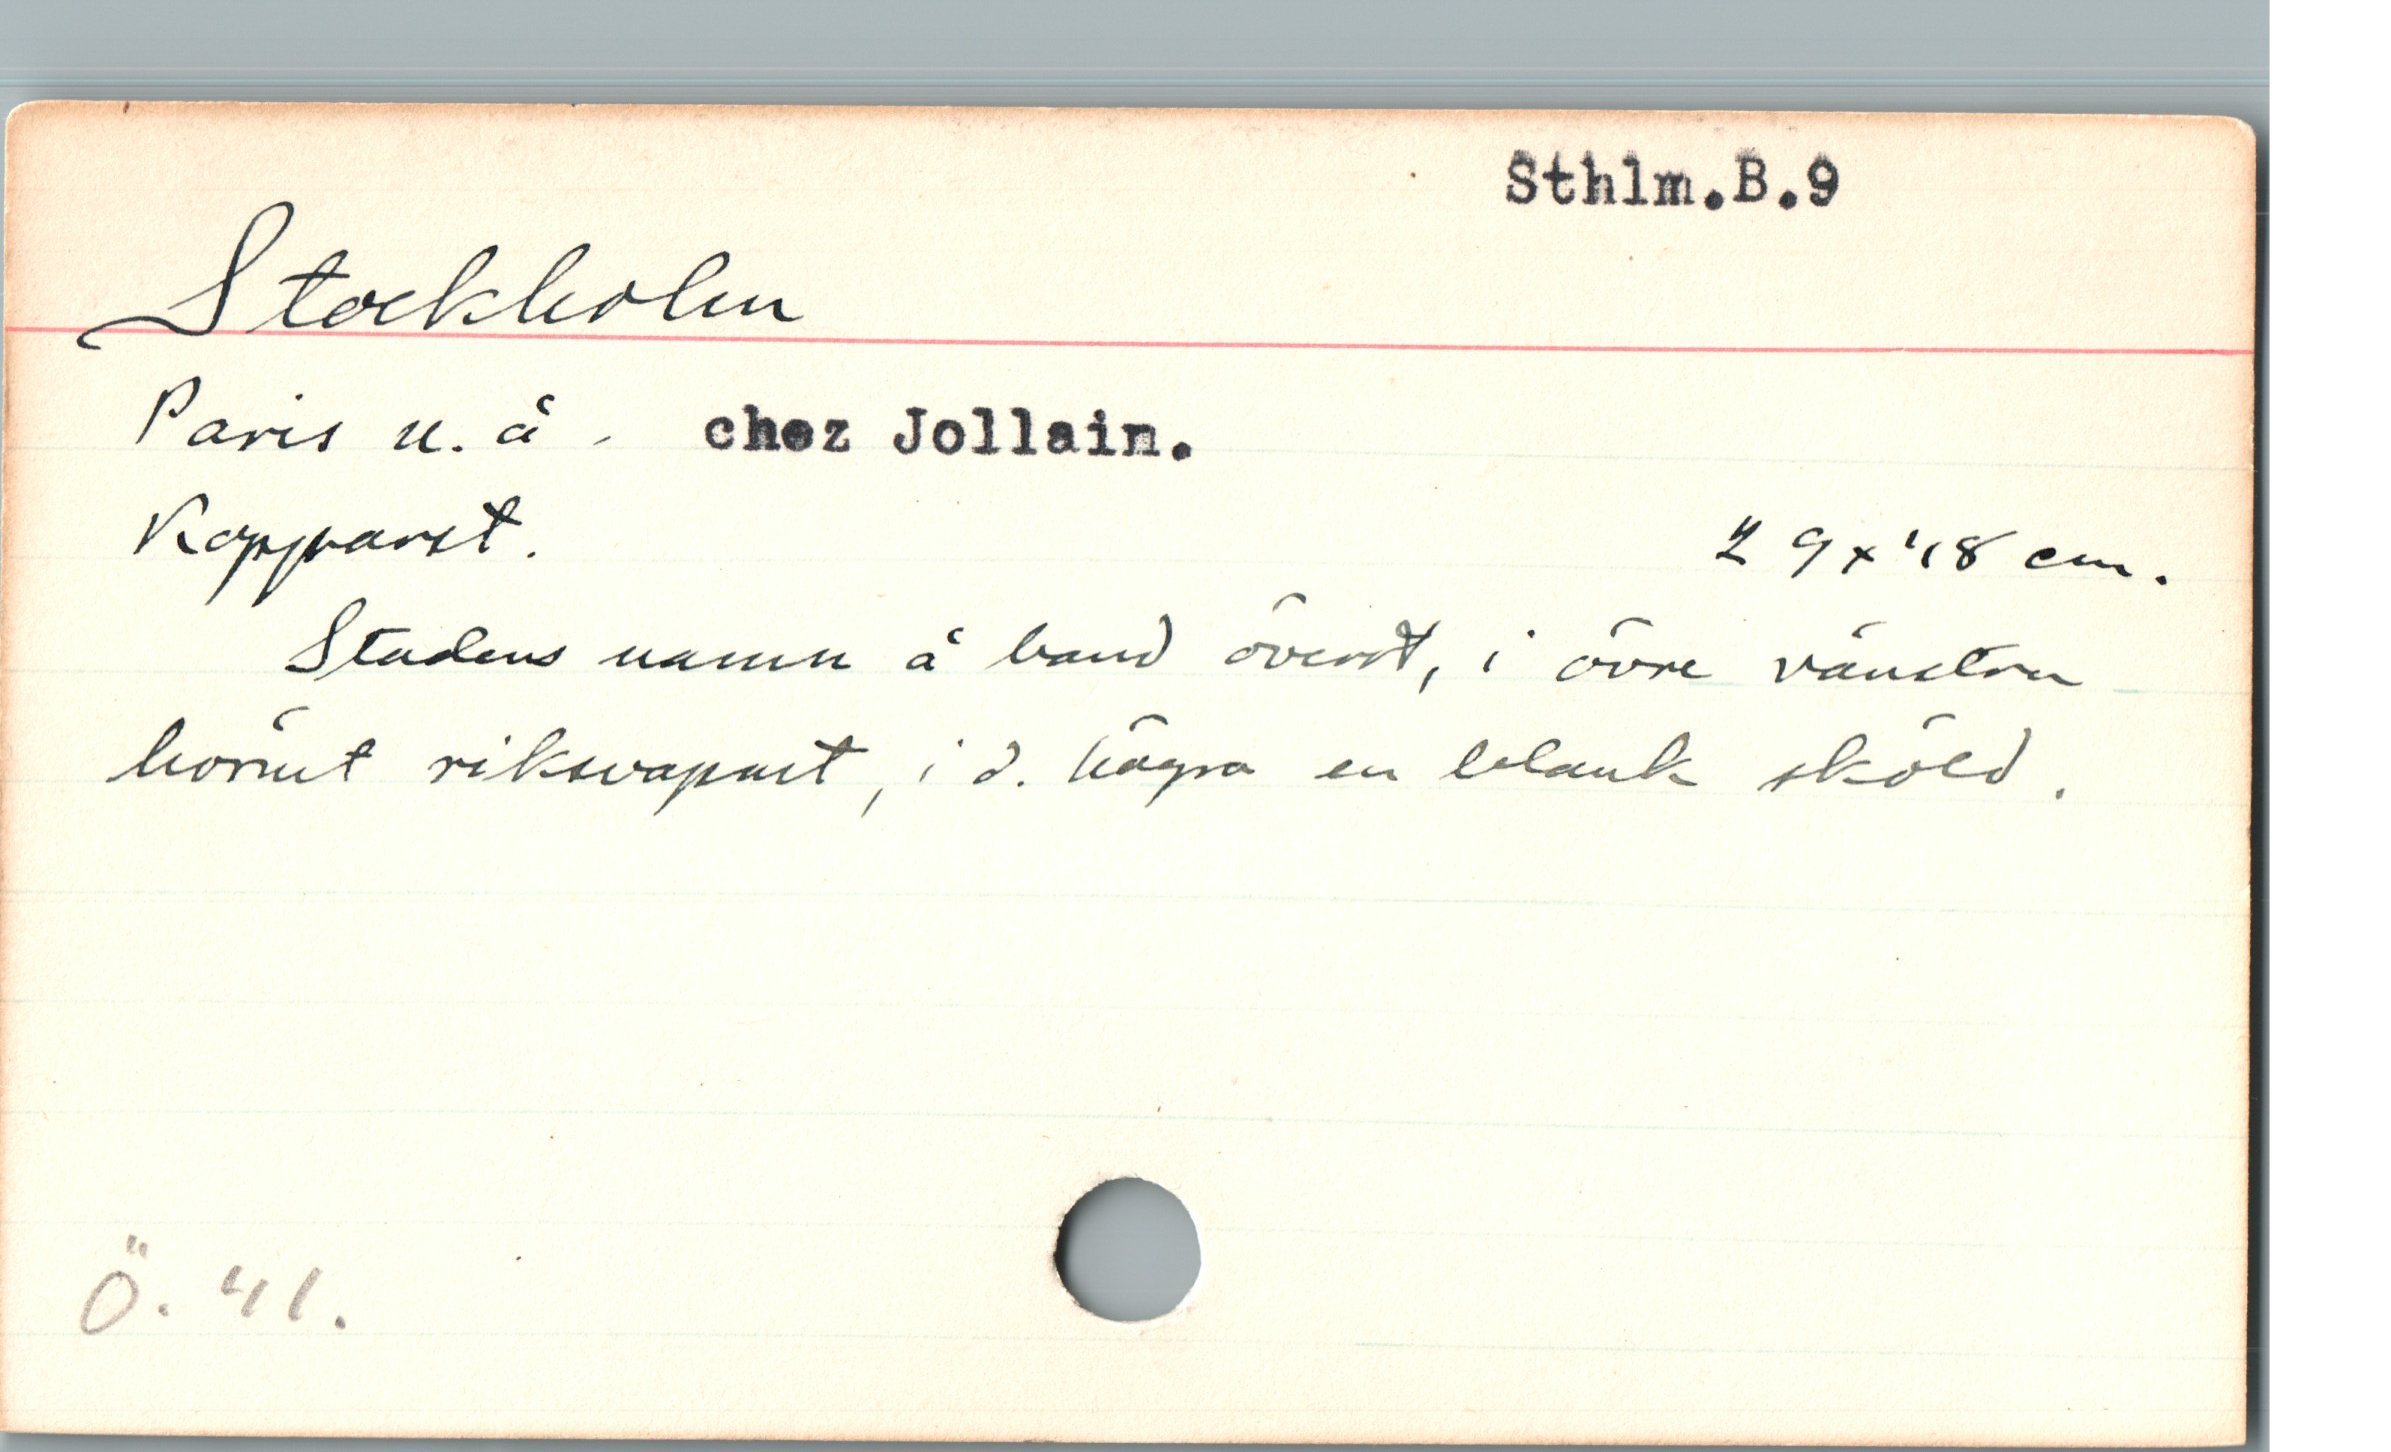 Sthlm.B.9
Stockholm
Paris u. å. chez Jollain.
Kopparst. 29x48 cm.
Stadens namn å band överst, i övre vänstra
hörnet riksvapnet, i d. högra en blank sköld.
Ö. 41.